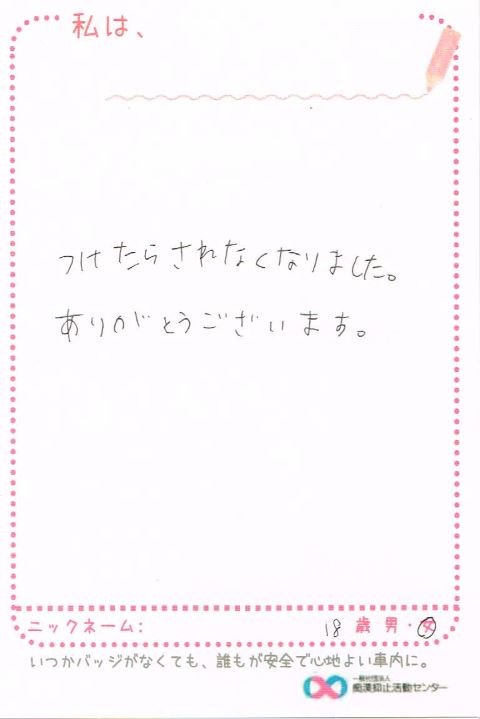 私は、
つけたらされなくなりました。
ありがとうございます。
ニックネーム: 18 歳 男・女
いつかバッジがなくても、誰もが安全で心地よい車内に。
一般社団法人
痴漢抑止活動センター